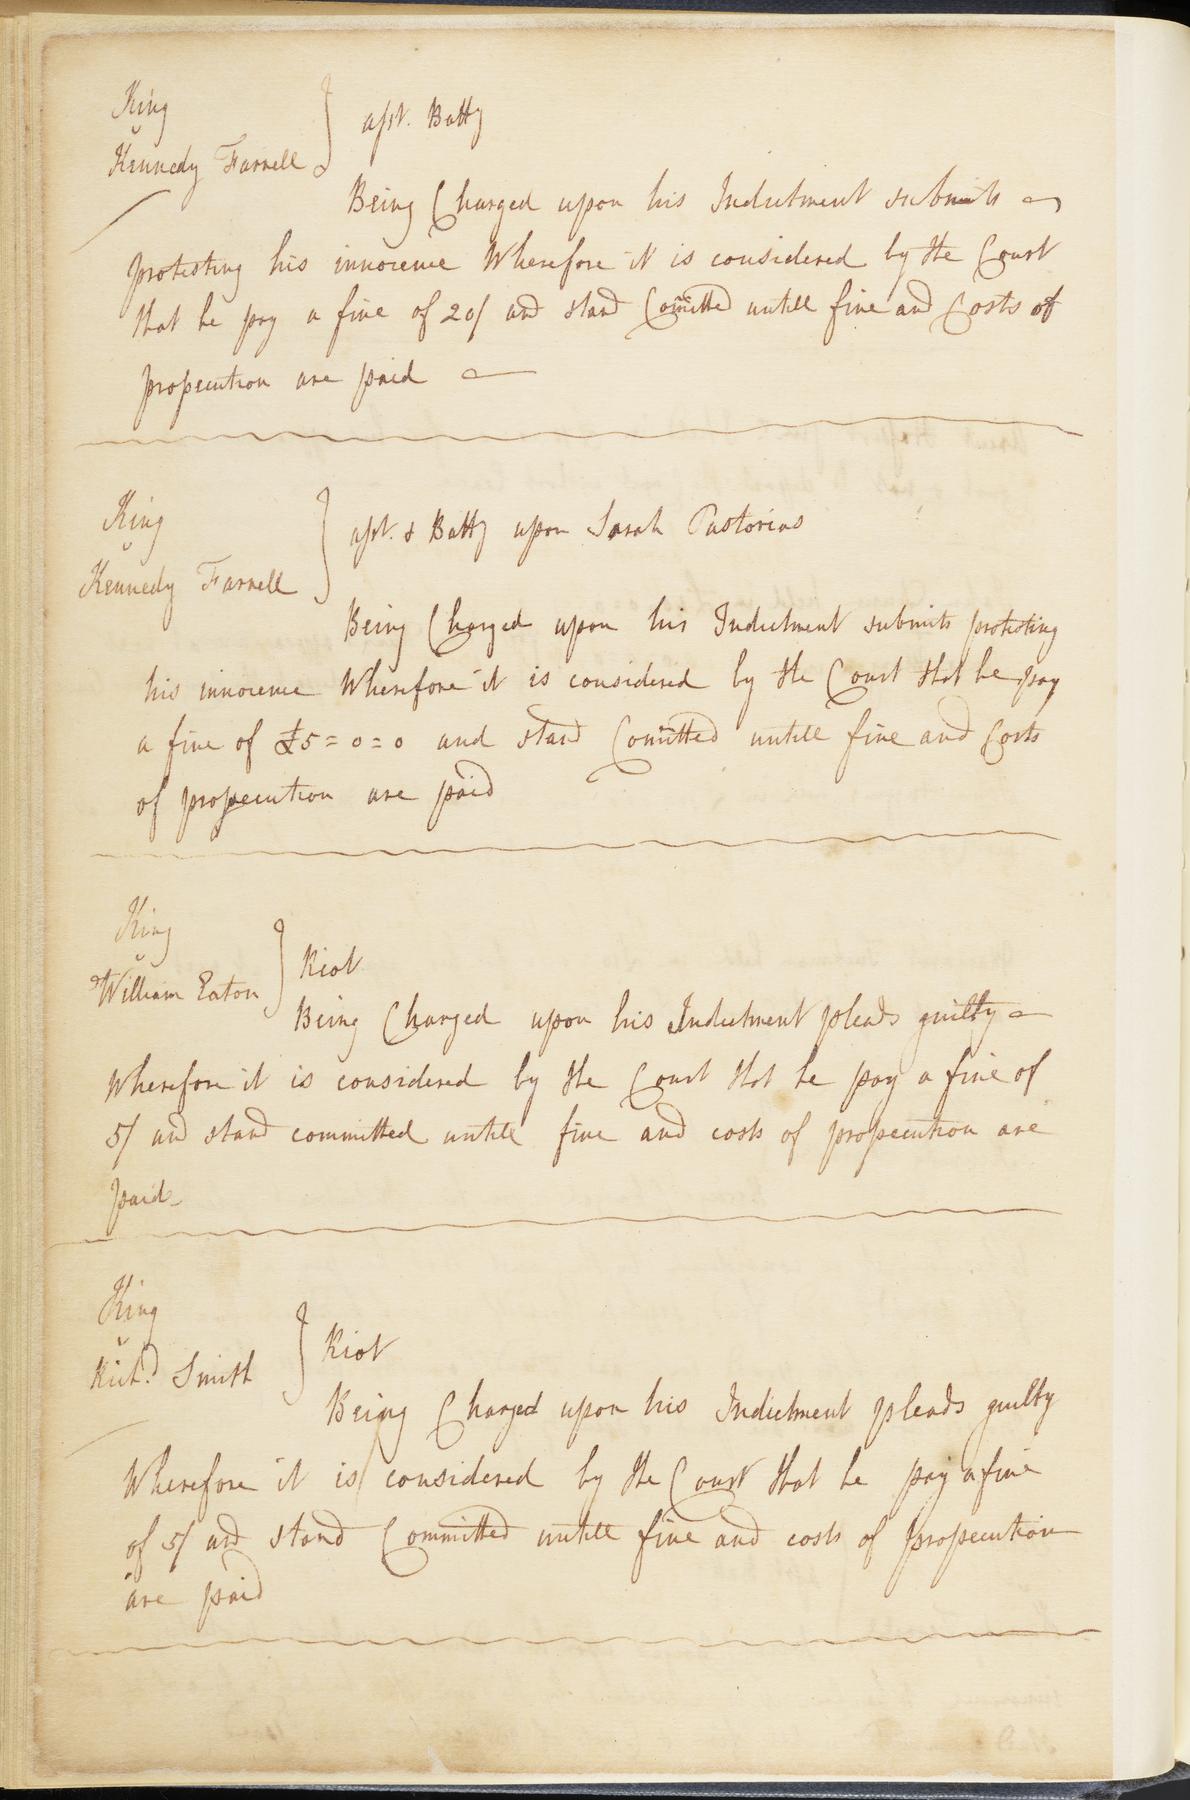 King
v
Kennedy Farrell } asst. Batty
Being Charged upon his Indictment submits
protesting his innocence Wherefore it is considered by the Court
that he pay a fine of 20/ and stand Comitted untill fine and Costs of
prosecution are paid
King
v
Kennedy Farrell } asst. & Batty upon Sarah Pastorius
Being Charged upon his Indictment submits protesting
his innocence Wherefore it is considered by the Court that he pay
a fine of £5=0=0 and stand Comitted untill fine and Costs
of prosecution are paid
King
v
William Eaton } Riot
Being Charged upon his Indictment pleads guilty
Wherefore it is considered by the Court that he pay a fine of
5/ and stand committed untill fine and costs of prosecution are
paid
King
v
Richd. Smith } Riot
Being Charged upon his Indictment pleads guilty
Wherefore it is considered by the Court that he pay a fine
of 5/ and stand Committed untill fine and costs of prosecution
are paid